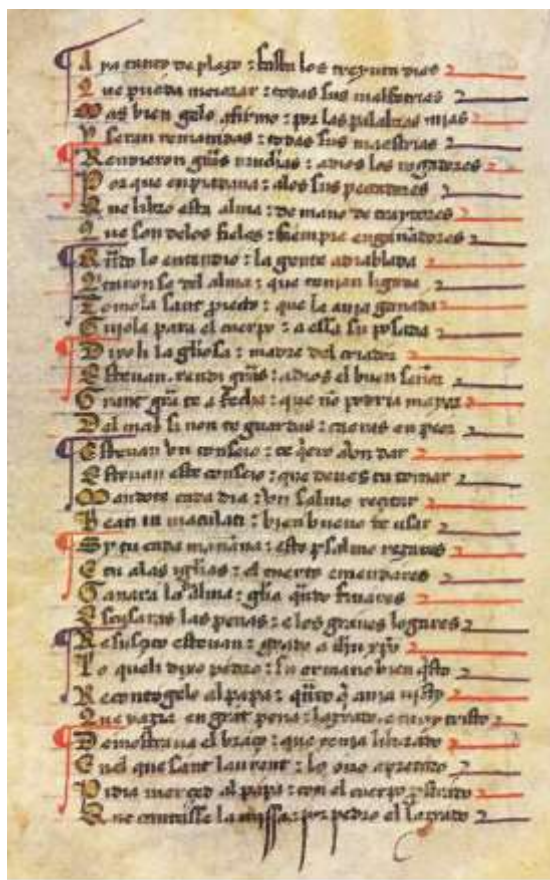 A ya tanto de plazo : fasta los treynta dias
Que pueda meiorar : todas sus malfetrias
Mas bien gelo afirmo : por las palabras mias
Y seran rematadas : todas sus maestrias
Rendieron grãs multiplicadas : a dios los rogadores
Por que enpiadaua : a los sus peccadores
Que libro esta alma : de mano de traytores
Que son delos fieles : siempre engañadores
Quãdo lo entendio : la gente adiablada
Quitaron se del alma : que tenian ligada
Tomola sant proiecto : que la auia ganada
Guiola para el cuerpo : a essa su posada
Dixoli la glĩosa : madre del criador
Esteuan rendi grãs : a dios el buen señor
Grant grã te a fecha : que nõ podria mayor
Del mal si non te guardas : caeras en peor
Esteuan vn conseio : te q̃ero aun dar
Esteuan este conseio : que deues tu tomar
Mandote cada dia : vn salmo recitar
Beati in maculati : bien bueno de usar
Sy tu cada mañana : esti psalmo rezares
E tu alas yglĩas : el tuerto emendares
Ganara tu alma : glĩa quãdo finares
Escusaras las penas : e los graues logares
Resuscito esteuan : grado a ihũ xp̃o
Lo queli dixo pedro : su ermano bien q̃sto
Recontogelo al papa : quãto q̃ auia uisto
Que yazia en grant pena : lazrado e muy tristo
Demostraua el braço : que tenia liurado
En el que sant laurent : lo ouo apretado
Pidia merçed al papa : con el cuerpo postrado
Que cantasse la missa : por pedro el lazrado